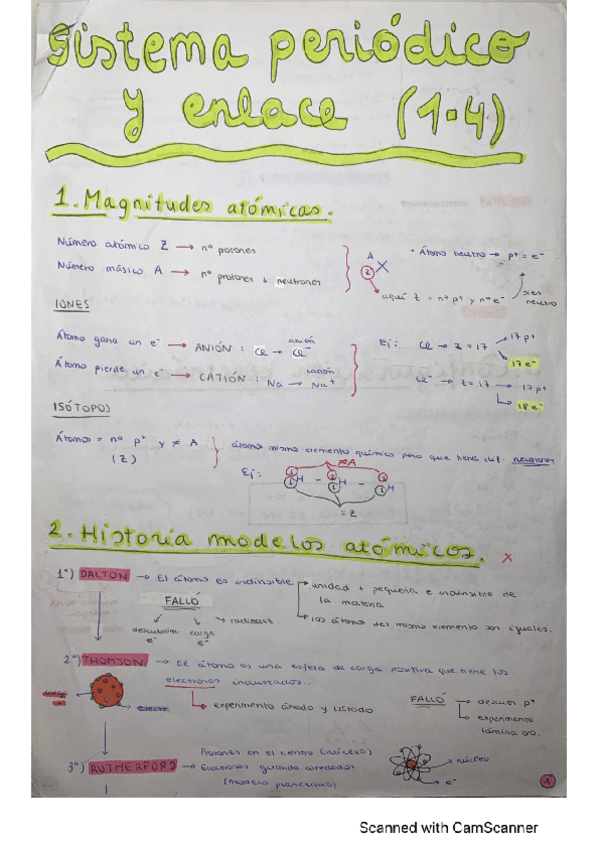 Sistema periódico
y enlace (1-4)
1. Magnitudes atómicas.
Número atómico Z → nº protones
Número másico A → nº protones + neutrones
A
Z X
• Átomo neutro → p+ = e-
aquí Z = nº p+ y nº e-
si es neutro
IONES
Átomo gana un e- → ANIÓN : Cl → Cl-
anión
Átomo pierde un e- → CATIÓN : Na → Na+
catión
Ej: Cl → Z = 17
17 p+
17 e-
Cl- → Z = 17 → 17 p+
18 e-
ISÓTOPOS
Átomos = nº p+ y ≠ A
(Z)
átomos mismo elemento químico pero que tiene dif. neutrones
Ej:
≠A
1 1 H - 2 1 H - 3 1 H
= Z
2. Historia modelos atómicos. x
1º) DALTON → El átomo es indivisible
unidad + pequeña e indivisible de
la materia
los átomos del mismo elemento son iguales.
FALLÓ
descubrim. e-
carga e-
radioact.
2º) THOMSON → El átomo es una esfera de carga positiva que tiene los
electrones incrustados.
experimento ánodo y cátodo
FALLÓ → descu. p+
experimento
lámina oro.
3º) RUTHERFORD → Protones en el centro (núcleo)
Electrones girando alrededor
(modelo planetario)
núcleo
e-
1
Scanned with CamScanner